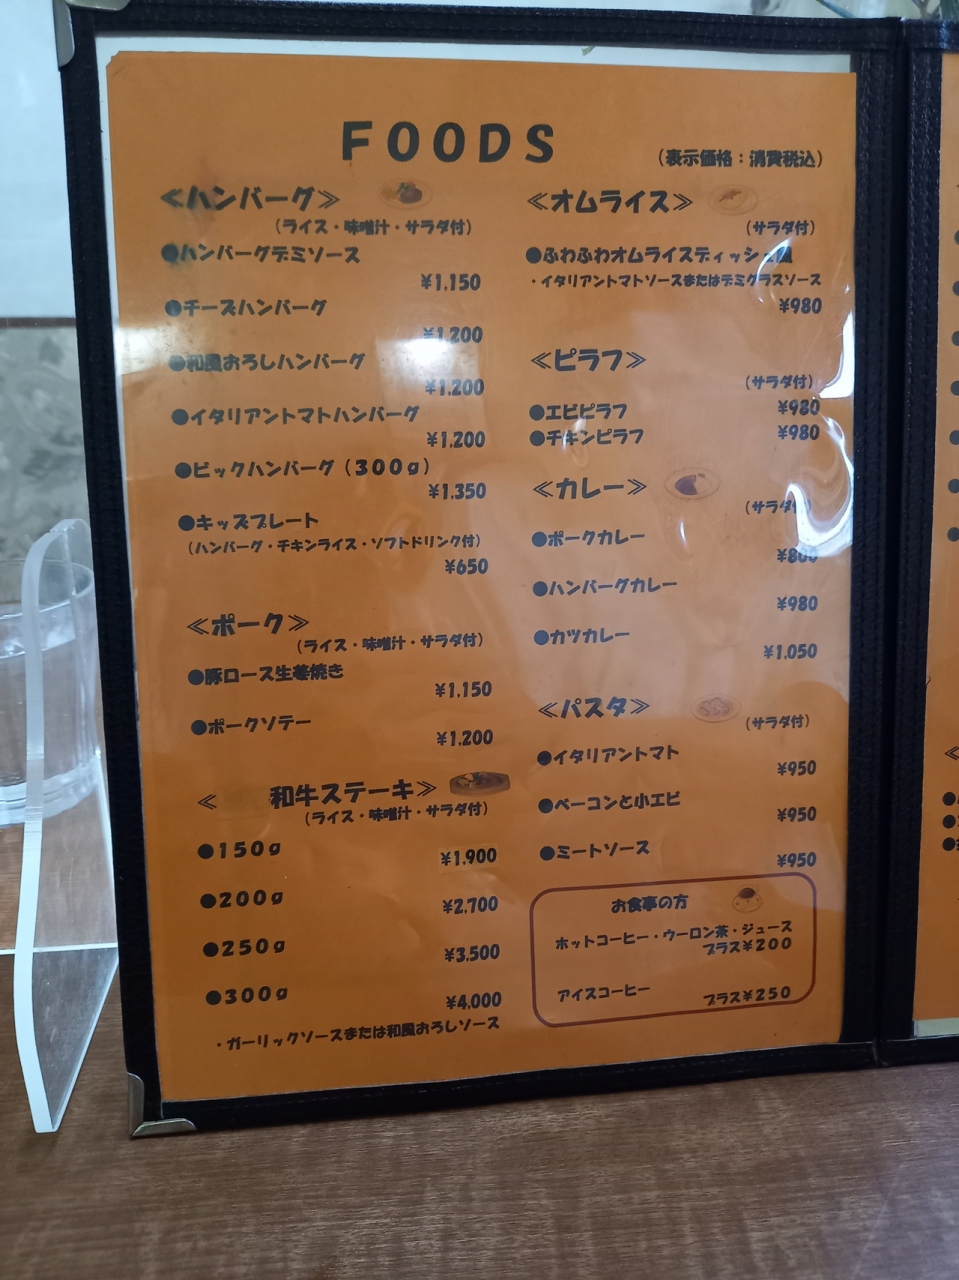 FOODS
(表示価格：消費税込)
≪ハンバーグ≫
(ライス・味噌汁・サラダ付)
●ハンバーグデミソース
¥1,150
●チーズハンバーグ
¥1,200
●和風おろしハンバーグ
¥1,200
●イタリアントマトハンバーグ
¥1,200
●ビックハンバーグ(300g)
¥1,350
●キッズプレート
(ハンバーグ・チキンライス・ソフトドリンク付)
¥650
≪ポーク≫
(ライス・味噌汁・サラダ付)
●豚ロース生姜焼き
¥1,150
●ポークソテー
¥1,200
≪ 和牛ステーキ≫
(ライス・味噌汁・サラダ付)
●150g
¥1,900
●200g
¥2,700
●250g
¥3,500
●300g
¥4,000
・ガーリックソースまたは和風おろしソース
≪オムライス≫
(サラダ付)
●ふわふわオムライスディッシュ風
・イタリアントマトソースまたはデミグラスソース
¥980
≪ピラフ≫
(サラダ付)
●エビピラフ ¥980
●チキンピラフ ¥980
≪カレー≫
(サラダ付)
●ポークカレー
●ハンバーグカレー
¥980
●カツカレー
¥1,050
≪パスタ≫
(サラダ付)
●イタリアントマト
¥950
●ベーコンと小エビ
¥950
●ミートソース
¥950
お食事の方
ホットコーヒー・ウーロン茶・ジュース
プラス¥200
アイスコーヒー プラス¥250